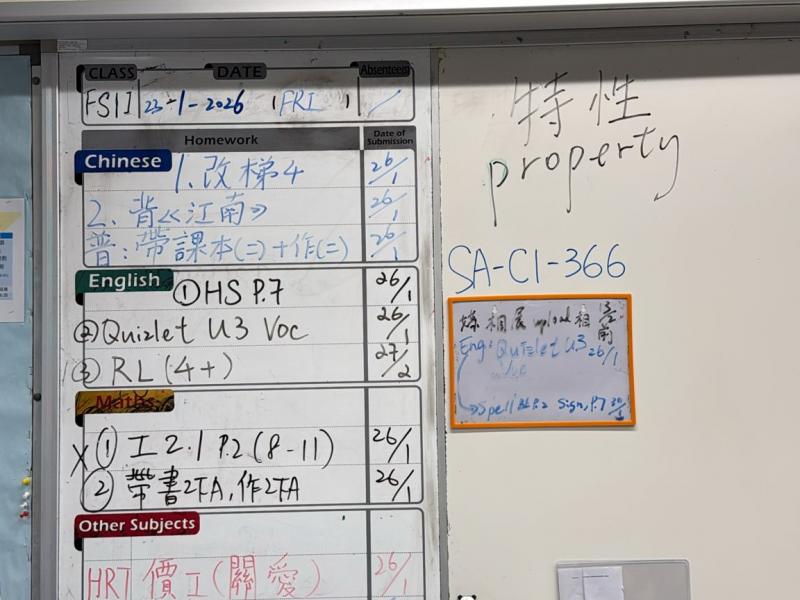 CLASS DATE Absentees
FS1I 23-1-2026 (FRI) /
Homework Date of Submission
Chinese 1. 改梯4 26/1
2. 背《江南》 26/1
普：帶課本(二)+作(二) 26/1
English ①HS P.7 26/1
②Quizlet U3 Voc 26/1
③ RL (4+) 27/2
Maths
X ① 工2.1 P.2 (8-11) 26/1
② 帶書2下A,作2下A 26/1
Other Subjects
HRT 價工(關愛) 26/1
特性
property
SA-C1-366
相展 upload 相 前
Eng: Quizlet U3 26/1
Sign, P.7